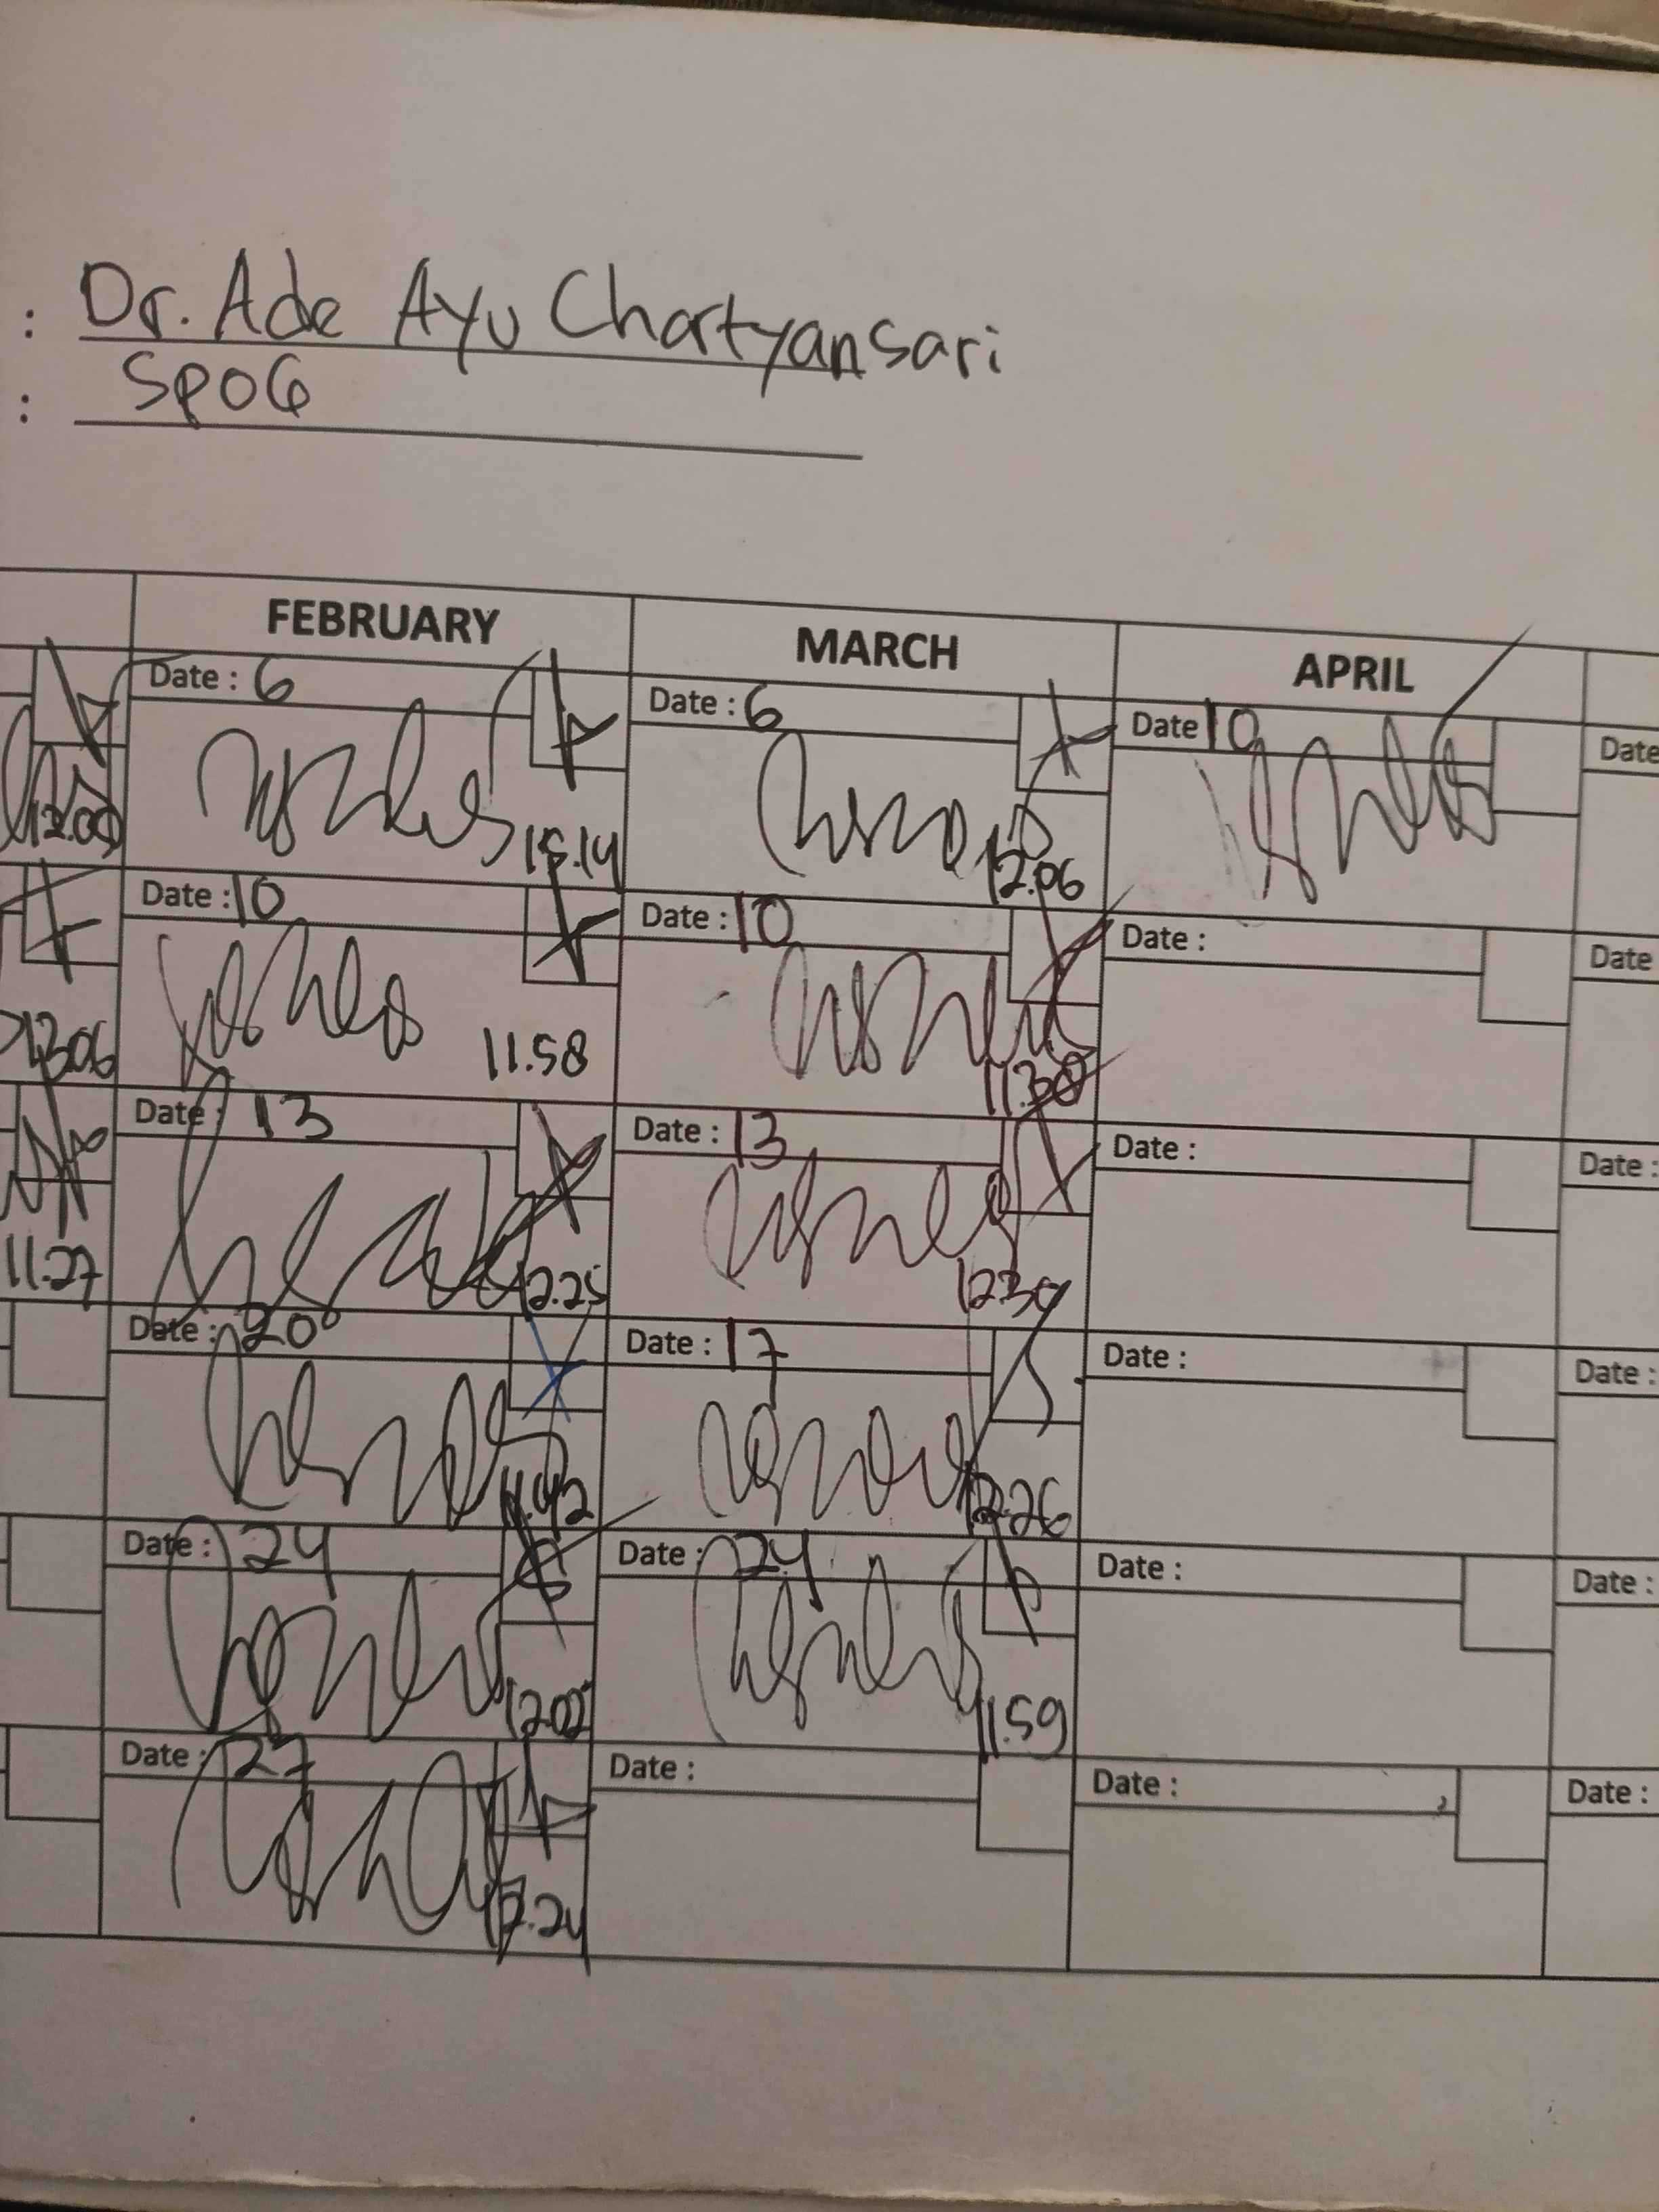 : Dr. Ade Ayu Chartyansari
: SPOG
FEBRUARY MARCH APRIL
Date : 6 Date : 6 Date 10 Date
12.06
Date : 10 Date : 10 Date : Date
13.06 11.58 11.38
Date : 13 Date : 13 Date : Date :
11.27 12.25
Date : 20 Date : 17 Date : Date :
11.42 12.26
Date : 24 Date : 24 Date : Date :
12.02 11.59
Date : 27 Date : Date : Date :
12.24